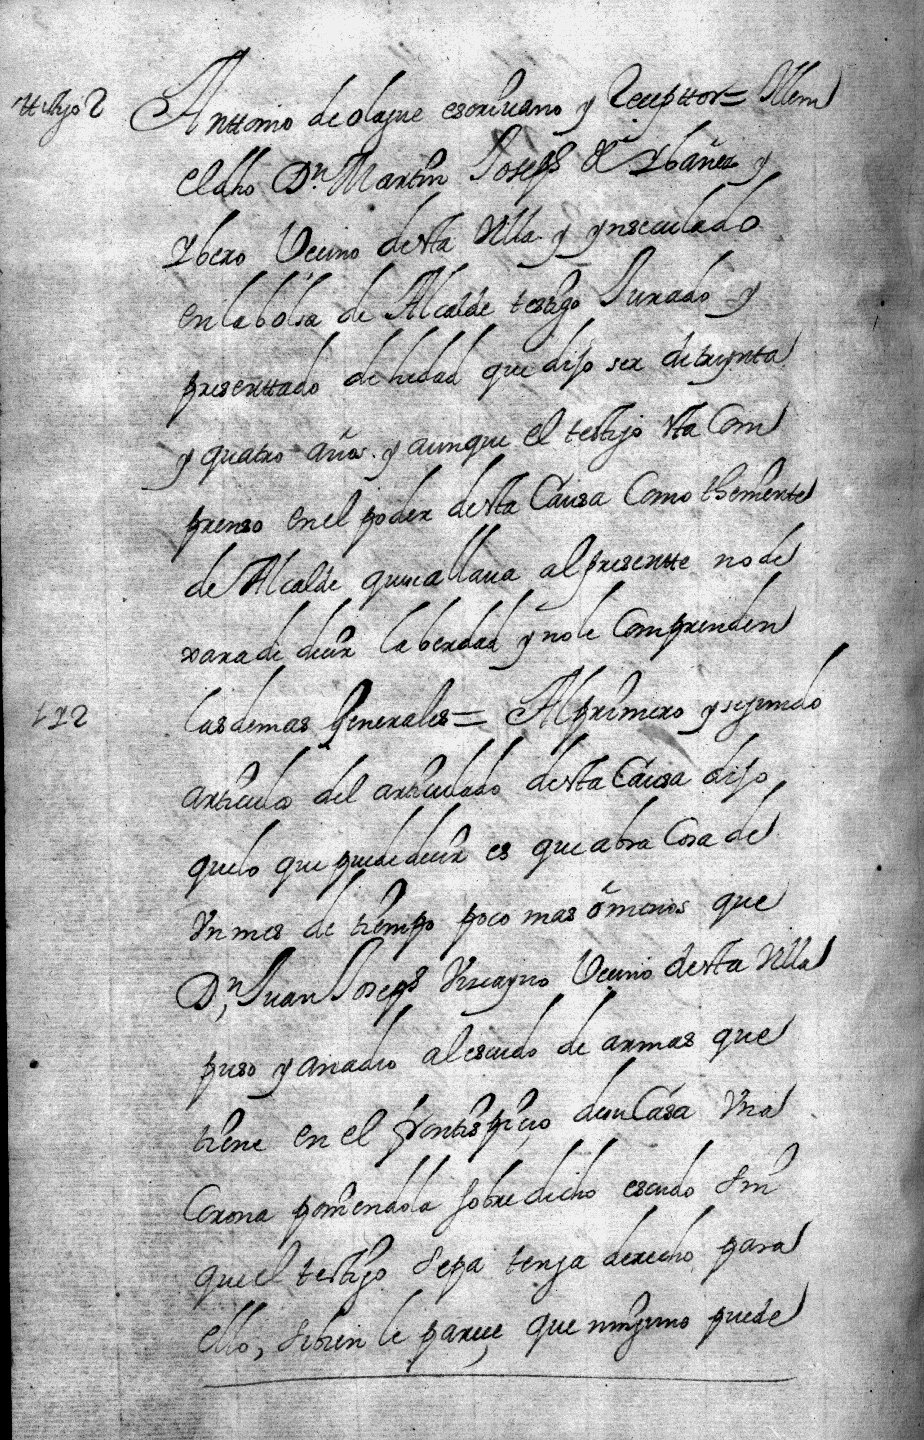 testigo 2
Anttonio de olague escriuano y Receptor = Ittem
el dho Dn. Martin Joseph de Ybañez y
Ybero Vecino desta Villa y ynseculado
en la bolsa de Alcalde testigo Jurado y
presenttado de hedad que dijo ser de treynta
y quatro años y aunque el testigo sta Com
prenso en el poder desta Causa Como theniente
de Alcalde que se allaua al presentte no de
xara de decir la berdad y no le Comprenden
las demas Generales = Al primero y segundo
1 y 2
articulos del articulado desta Causa dijo
que lo que puede decir es que abra Cosa de
Vn mes de tiempo poco mas ò menos que
Dn. Juan Joseph Viscayno Vecino desta Villa
puso y anadio al escudo de armas que
tiene en el frontispicio de su Casa Vna
Corona poniendola sobre dicho escudo sin
que el testigo sepa tenga derecho para
ello, si bien le parece, que ninguno puede